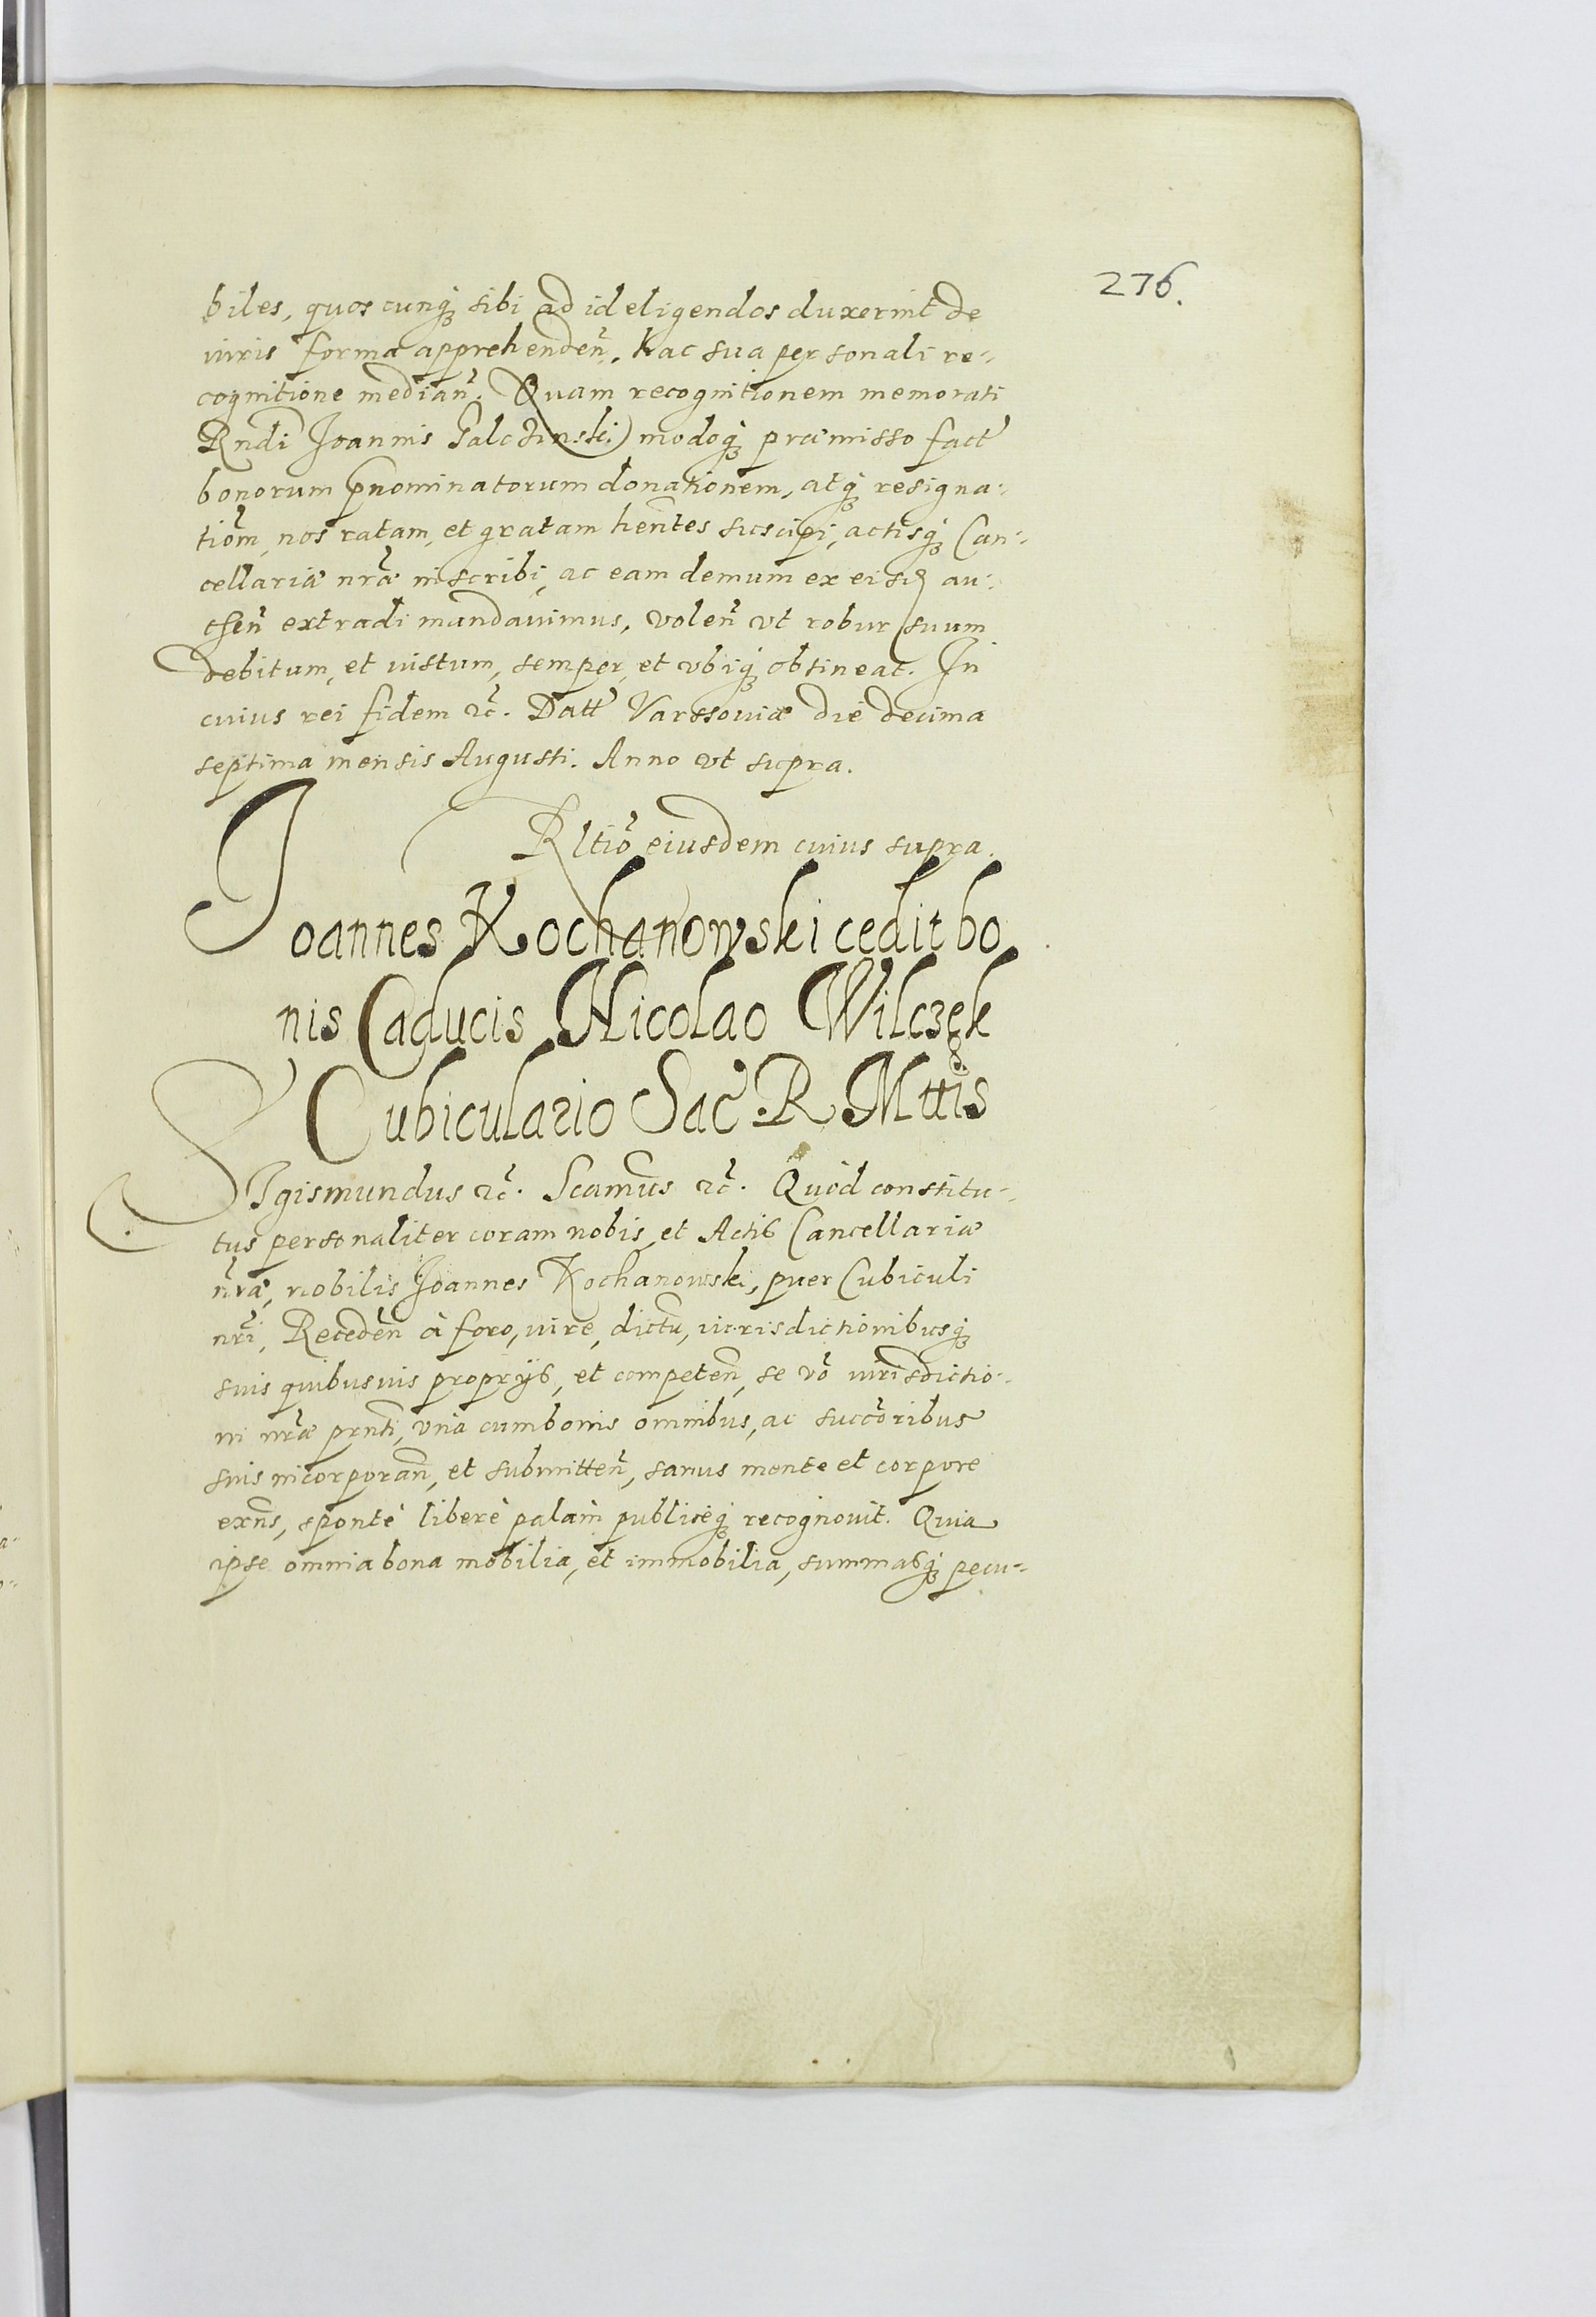 276.
biles, quoscunq₃ sibi ad id eligendos duxerint de
iuris forma apprehendeñ, hac sua personali re-
cognitione mediañ. Quam recognitionem memorati
Rndi Joannis modoq₃ præmisso fact
bonorum pnominatorum donationem, atq₃ resigna-
tiom̃, nos ratam, et gratam hentes suscipi, actisq₃ Can-
cellariæ nræ inscribi, ac eam demum ex eisd au-
then̄ extradi mandauimus, volen̄ vt robur suum
debitum, et iustum, semper, et vbiq₃ obtineat. In
cuius rei fidem ꝛc̄. Datt Varssouiæ die decima
septima mensis Augusti. Anno vt supra.
Rltiō eiusdem cuius supra.
Joannes Kochanowski cedit bo
nis Caducis Nicolao Wilczek
Cubiculario Sac̄. R Mttis
SIgismundus ꝛc̄. Scamus ꝛc̄. Quòd constitu-
tus personaliter coram nobis, et Actis Cancellariæ
nræ, nobilis Joannes Kochanowski, puer Cubiculi
nri, Receden̄ à foro, iure, dictu, iurisdictionibusq₃
suis quibusuis proprijs, et competen̄, se vō iurisdictio-
ni nræ prnti, vnà cum bonis omnibus, ac succoribus
suis incorporan̄, et submitten̄, sanus mente et corpore
exn̄s, spontè liberè palàm publicèq₃ recognouit. Quia
ipse omnia bona mobilia, et immobilia, summasq₃ pecu-